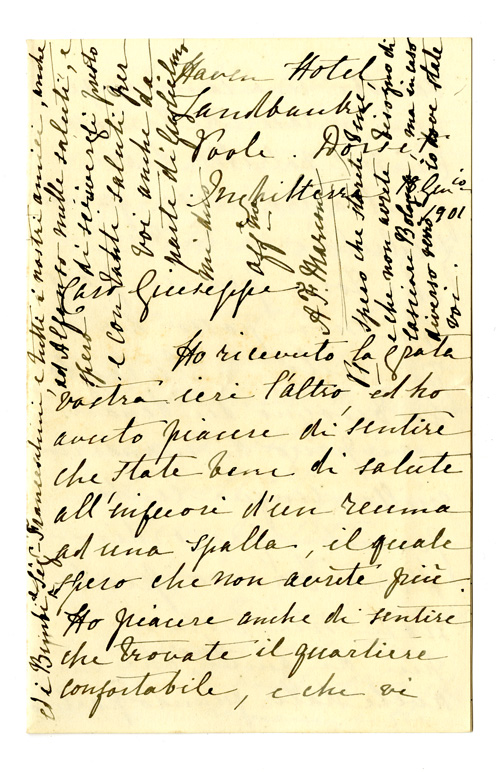 Haven Hotel
Sandbanks
Poole. Dorset
Inghilterra 1901
Caro Giuseppe
Ho ricevuto la grata
vostra ieri l'altro, ed ho
avuto piacere di sentire
che state bene di salute
all'infuori d'un reuma
ad una spalla, il quale
spero che non avrete più.
Ho piacere anche di sentire
che trovate il quartiere
confortabile, e che vi
ed i Bimbi Sig. Franceschini e tutti i nostri amici, anche
ad Alfonso mille saluti, e
spero di scrivergli presto
e con tanti saluti per
voi anche da
parte di Guglielmo
mi dico
aff.ma
A. F. Marconi
spero che starete bene,
e che non avrete bisogno di
lasciare Bologna, ma in caso
diverso verrò io dove state
voi.